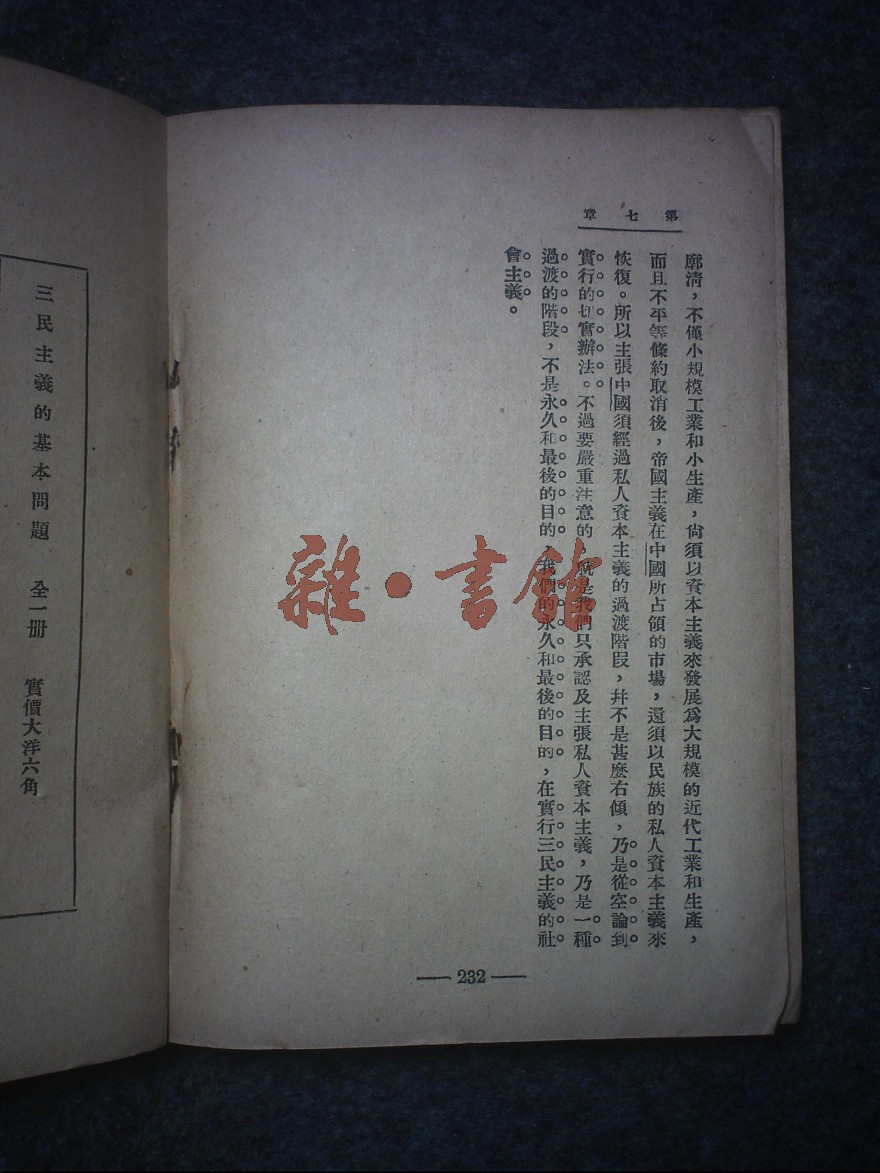 第七章
廓清，不僅小規模工業和小生產，尙須以資本主義來發展爲大規模的近代工業和生產，
而且不平等條約取消後，帝國主義在中國所占領的市場，還須以民族的私人資本主義來
恢復。所以主張中國須經過私人資本主義的過渡階段，幷不是甚麼右傾，乃是從空論到
實行的切實辦法。不過要嚴重注意的，就是我們只承認及主張私人資本主義，乃是一種
過渡的階段，不是永久和最後的目的，我們的永久和最後的目的，在實行三民主義的社
會主義。
— 232 —
三民主義的基本問題 全一册 實價大洋六角
雜·書館